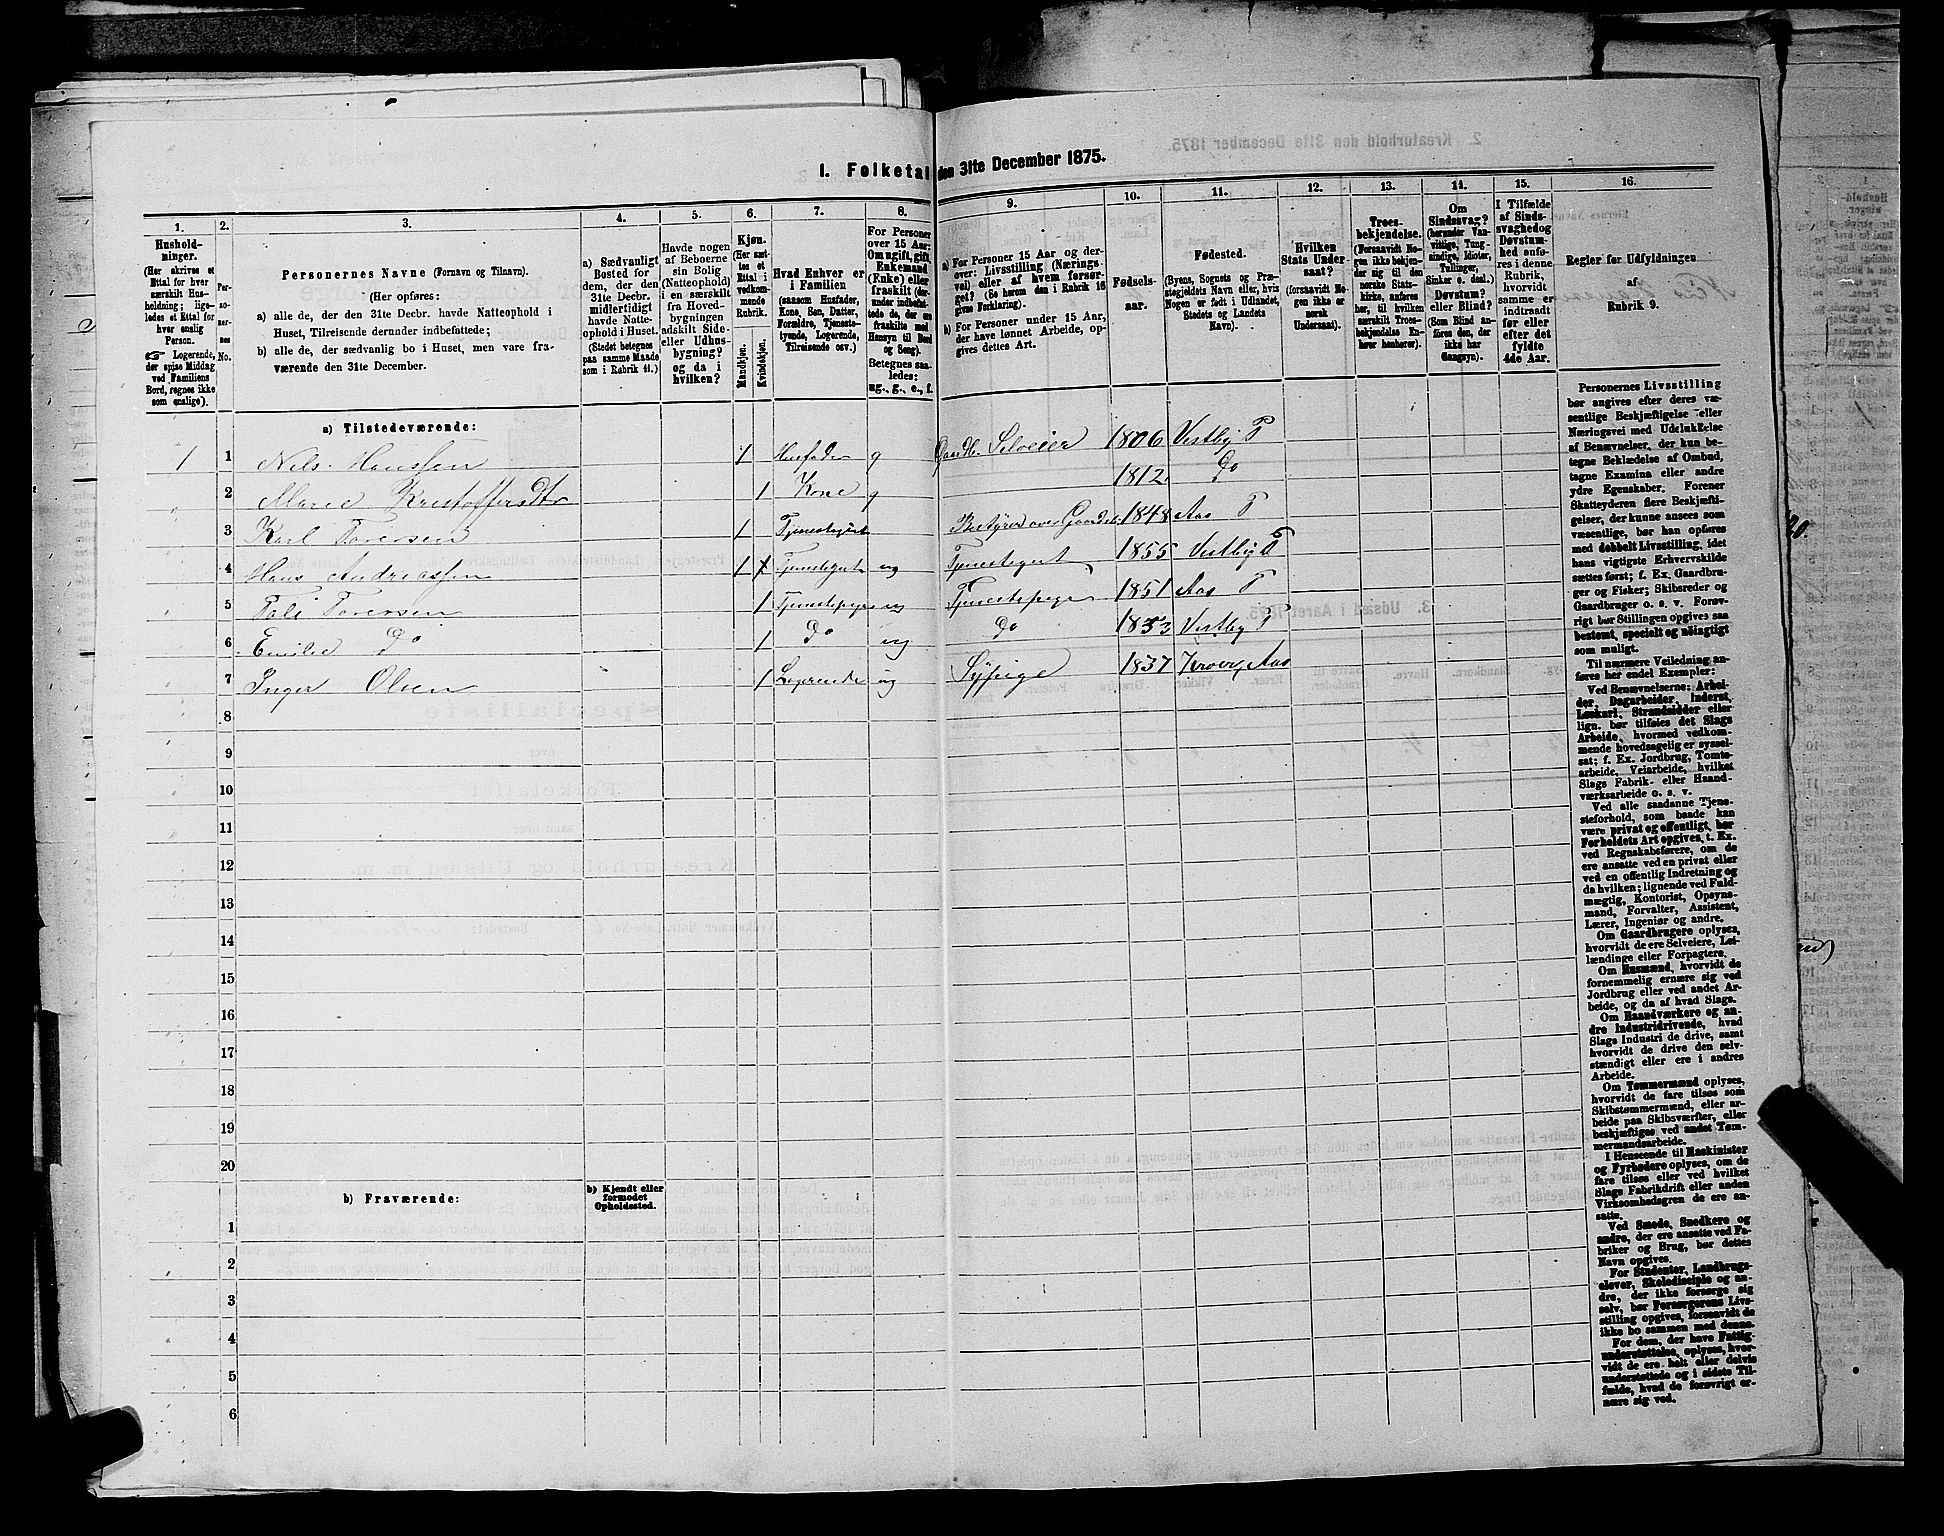 I. Folketal den 31te December 1875.
1.
2.
3.
4.
5.
6.
7.
8.
9.
10.
11.
12.
13.
14.
15.
16.
Hushold-
ninger.
(Her skrives et
Ettal for hver
særskilt Hus-
holdning; lige-
ledes et Ettal for
hver enslig
Person.
☞ Logerende,
der spise Middag
ved Familiens
Bord, regnes ikke
som enslige).
Per-
so-
ner-
nes
No.
Personernes Navne (Fornavn og Tilnavn).
(Her opføres:
a) alle de, der den 31te Decbr. havde Natteophold i
Huset, Tilreisende derunder indbefattede;
b) alle de, der sædvanlig bo i Huset, men vare fra-
værende den 31te December.
a) Sædvanligt
Bosted for
dem, der den
31te Decbr.
midlertidigt
havde Natte-
ophold i Huset.
(Stedet betegnes
paa samme Maade
som i Rubrik 11.)
Havde nogen
af Beboerne
sin Bolig
(Natteophold)
i en særskilt
fra Hoved-
bygningen
adskilt Side-
eller Udhus-
bygning?
og da i
hvilken?
Kjøn.
(Her sæt-
tes et
Ettal i
vedkom-
mende
Rubrik.
Mandkjøn.
Kvindekjøn.
Hvad Enhver er
i Familien
(saasom Husfader,
Kone, Søn, Datter,
Forældre, Tjeneste-
tyende, Logerende,
Tilreisende osv.)
For Personer
over 15 Aar:
Om ugift, gift,
Enkemand
(Enke) eller
fraskilt
Betegnes saa-
ledes:
ug., g., e., f.
a) For Personer 15 Aar og der-
over: Livsstilling (Nærings-
vei) eller af hvem forsør-
get? (Se herom den i Rubrik 16
givne Forklaring).
b) For Personer under 15 Aar,
der have lønnet Arbeide, op-
gives dettes Art.
Fødsels-
aar.
Fødested.
(Byens, Sognets og Præ-
stegjeldets Navn eller, hvis
Nogen er født i Udlandet,
Stedets og Landets
Navn).
Hvilken
Stats Under-
saat?
(forsaavidt No-
gen ikke er
norsk
Undersaat).
Troes-
bekjendelse.
(Forsaavidt No-
gen ikke bekjen-
der sig til den
norske Stats-
kirke, anføres
her, til hvilken
særskilt Troes-
bekjendelse En-
hver henhører).
Om
Sindssvag?
(herunder Van-
vittige, Tung-
sindige, Idioter,
Tullinger,
Sinker o. desl.)
Døvstum?
eller Blind?
(Som Blind an-
føres den, der
ikke har
Gangsyn).
I Tilfælde
af Sinds-
svaghed og
Døvstum-
hed anfø-
res i denne
Rubrik,
hvorvidt
samme er
indtraadt
før eller
efter det
fyldte
4de Aar.
Regler for Udfyldningen
af
Rubrik 9.
a) Tilstedeværende:
1 1 Nils Hanssen 1 Husfader g Gaardb. Selveier 1806 Vestby P
2 Marie Kristoffersdtr 1 Kone g 1812 Do
3 Karl Torersen 1 Tjenestegut Bestyrer over Gaardsb. 1848 Aas P
4 Hans Andreassen 1 Tjenestegut ug Tjenestegut 1855 Vestby P
5 Torersen 1 Tjenestepige ug Tjenestepige 1851 Aas P
6 Emilie Do 1 Do ug Do 1853 Vestby P
7 Inger Olsen 1 Logerende ug Sypige 1837 Kroer, Aas
8
9
10
11
12
13
14
15
16
17
18
19
20
b) Fraværende:
b) Kjendt eller
formodet
Opholdssted.
1
2
3
4
5
6
Personernes Livsstilling
bør angives efter deres væ-
sentlige Beskjæftigelse eller
Næringsvei med Udelukkelse
af Benævnelser, der kun be-
tegne Beklædelse af Ombud,
tagne Examina eller andre
ydre Egenskaber. Forener
Skatteyderen flere Beskjæfti-
gelser, der kunne ansees som
væsentlige, bør han opføres
med dobbelt Livsstilling, idet
hans vigtigste Erhvervskilde
sættes først; f. Ex. Gaardbru-
ger og Fisker; Skibsreder og
Gaardbruger o. s. v. Forøv-
rigt bør Stillingen opgives saa
bestemt, specielt og nøiagtigt
som muligt.
Til nærmere Veiledning an-
føres her endel Exempler:
Ved Benævnelserne: Arbei-
der, Dagarbeider, Inderst,
Løskarl, Strandsidder eller
lign. bør tilføies det Slags
Arbeide, hvormed vedkom-
mende hovedsagelig er syssel-
sat; f. Ex. Jordbrug, Tomte-
arbeide, Veiarbeide, hvilket
Slags Fabrik- eller Haand-
værksarbeide o. s. v.
Ved alle saadanne Tjene-
steforhold, som baade kan
være privat og offentligt, bør
Forholdets Art opgives, t. Ex.
ved Regnskabsførere, om de
ere ansatte ved en privat eller
ved en offentlig Indretning og
da hvilken; lignende ved Fuld-
mægtig, Kontorist, Opsyns-
mand, Forvalter, Assistent,
Lærer, Ingeniør og andre.
Om Gaardbrugere oplyses,
hvorvidt de ere Selveiere, Lei-
lændinge eller Forpagtere.
Om Husmænd, hvorvidt de
fornemmelig ernære sig ved
Jordbrug eller ved andet Ar-
beide, og da af hvad Slags.
Om Haandværkere og an-
dre Industridrivende, hvad
Slags Industri de drive, samt
hvorvidt de drive den selv-
stændigt eller ere i andres
Arbeide.
Om Tømmermænd oplyses,
hvorvidt de fare tilsøs som
Skibstømmermænd, eller ar-
beide paa Skibsværfter, eller
beskjæftiges ved andet Tøm-
mermandsarbeide.
I Henseende til Maskinister
og Fyrbødere oplyses, om de
fare tilsøs eller ved hvilket
Slags Fabrikdrift eller anden
Virksomhedsgren de ere an-
satte.
Ved Smede, Snedkere og
andre, der ere ansatte ved Fa-
briker og Brug, bør dettes
Navn opgives.
For Studenter, Landbrugs-
elever, Skoledisciple og an-
dre, der ikke forsørge sig
selv, bør Forsørgerens Livs-
stilling opgives, forsaavidt de
ikke bo sammen med denne.
For dem, der have Fattig-
understøttelse, oplyses, hvor-
vidt de ere helt eller delvis
understøttede og i sidste Til-
fælde, hvad de forøvrigt er-
nære sig ved.